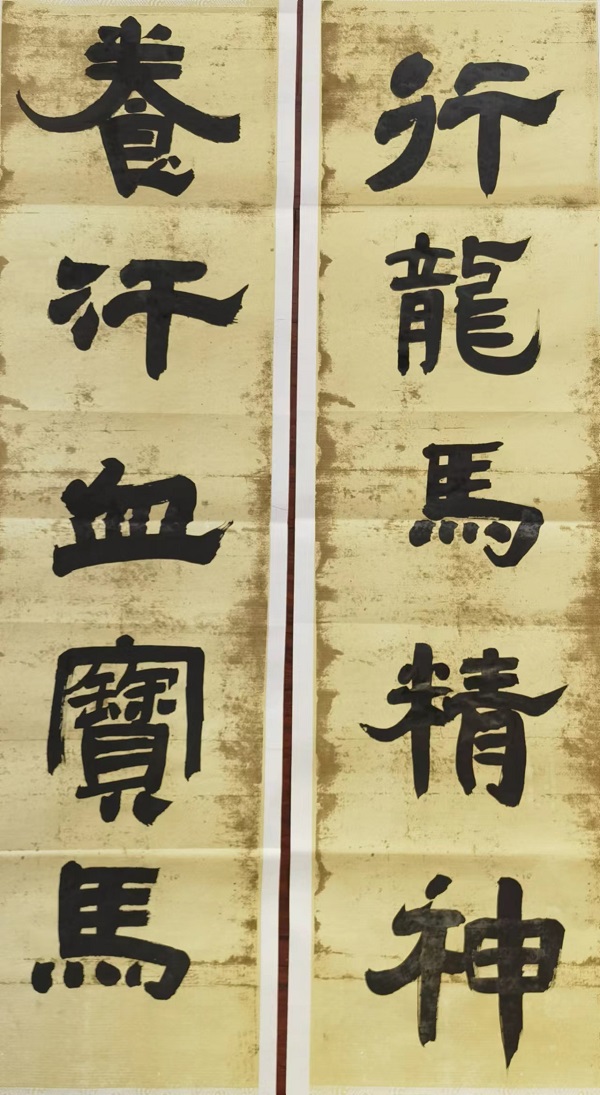 行龍馬精神
養汗血寶馬